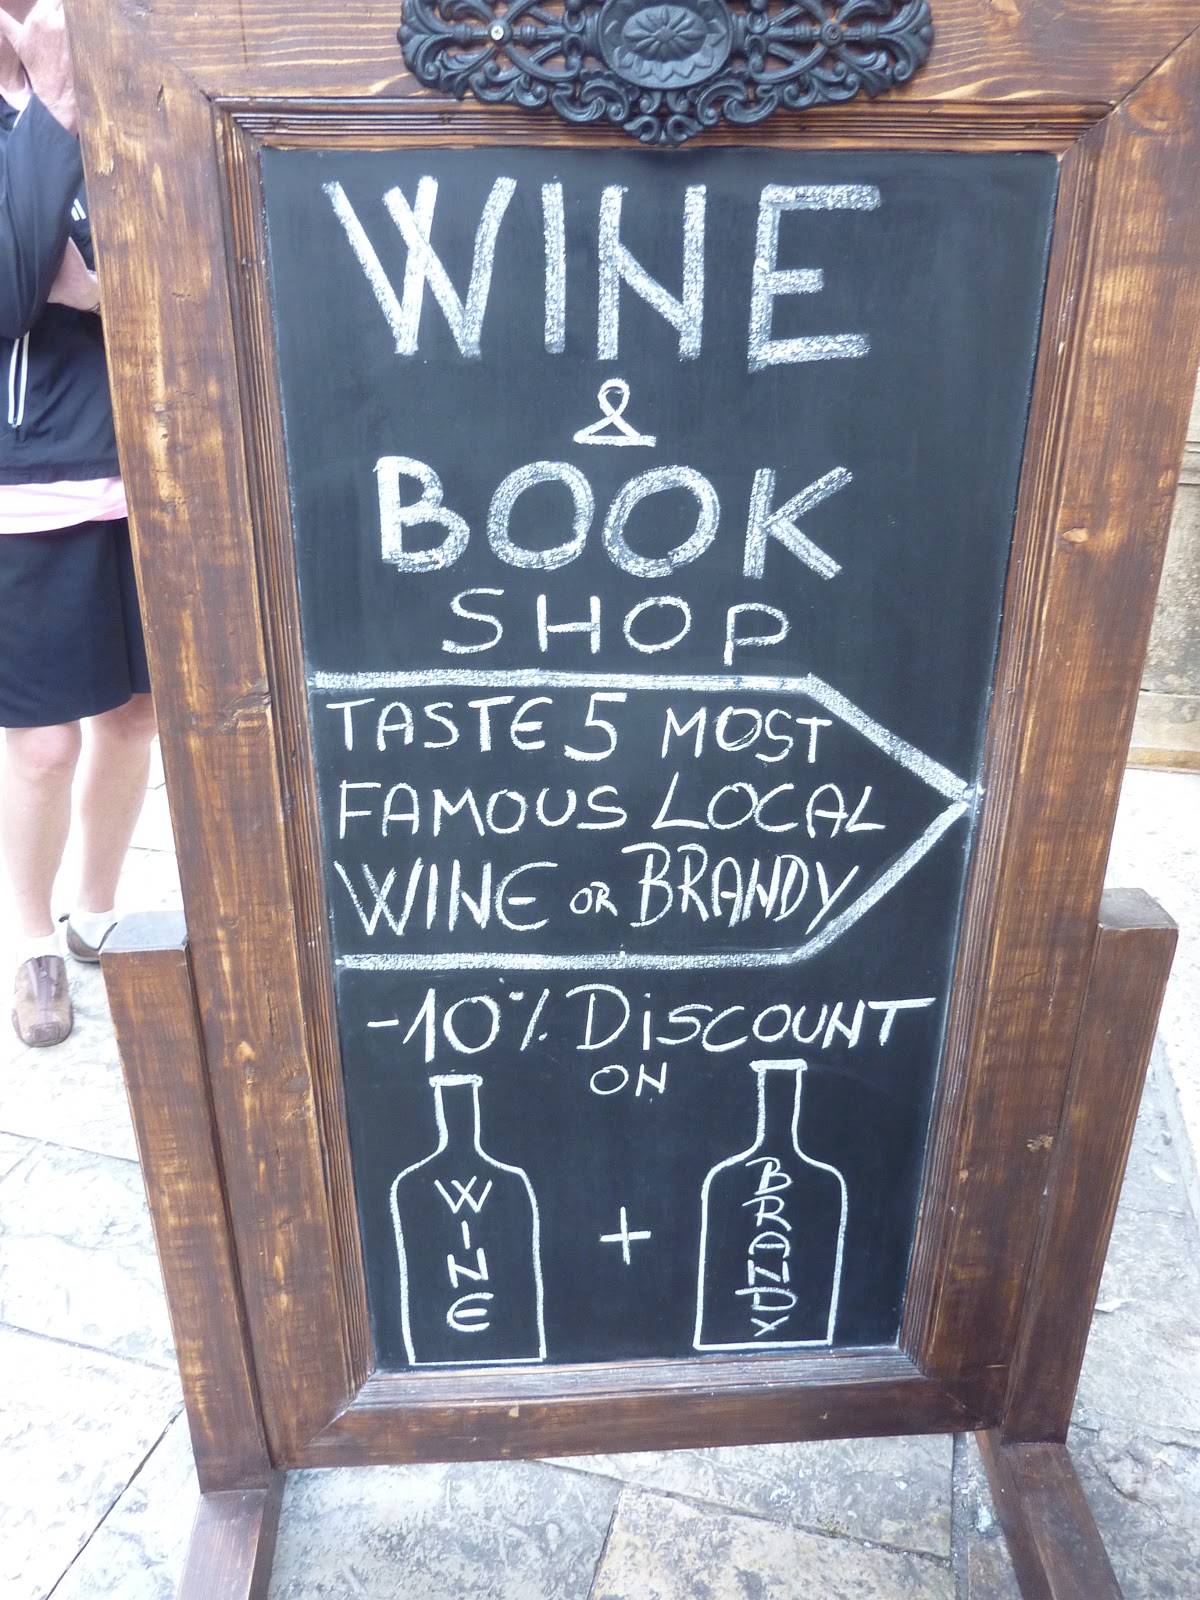 WINE
&
BOOK
SHOP
TASTE 5 MOST
FAMOUS LOCAL
WINE OR BRANDY
-10% DISCOUNT
ON
WINE + BRANDY